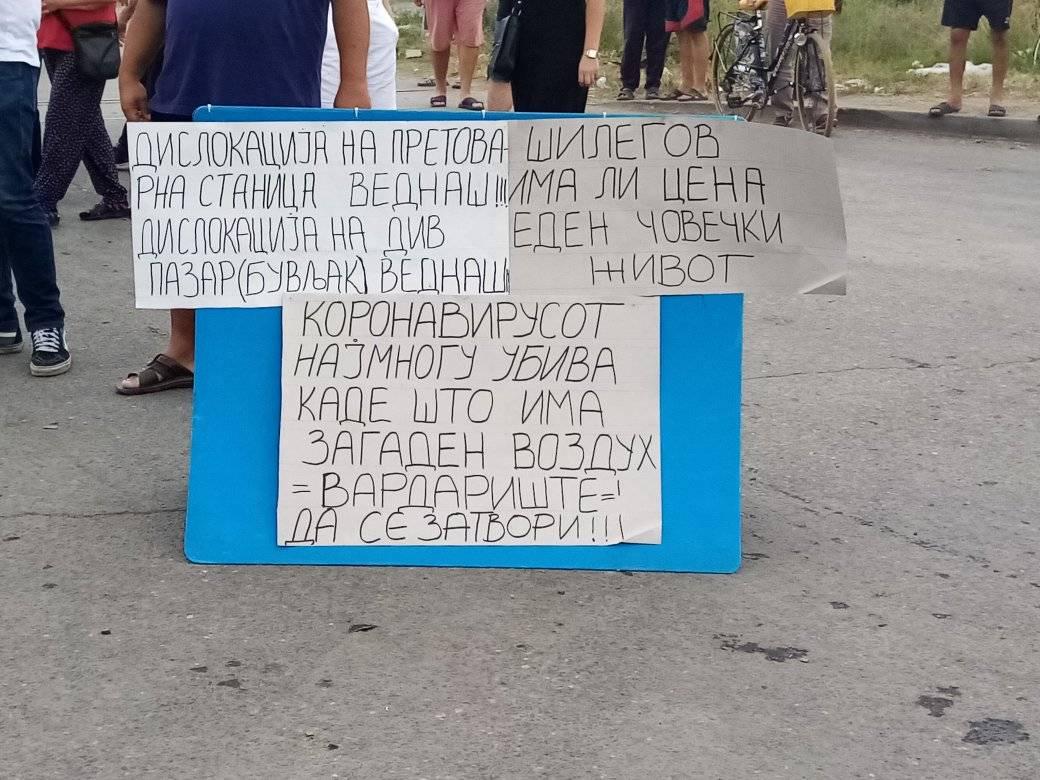 ДИСЛОКАЦИЈА НА ПРЕТОВА
РНА СТАНИЦА ВЕДНАШ!!!
ДИСЛОКАЦИЈА НА ДИВ
ПАЗАР(БУВЉАК) ВЕДНАШ
ШИЛЕГОВ
ИМА ЛИ ЦЕНА
ЕДЕН ЧОВЕЧКИ
ЖИВОТ
КОРОНАВИРУСОТ
НАЈМНОГУ УБИВА
КАДЕ ШТО ИМА
ЗАГАДЕН ВОЗДУХ
=ВАРДАРИШТЕ=!
ДА СЕ ЗАТВОРИ!!!